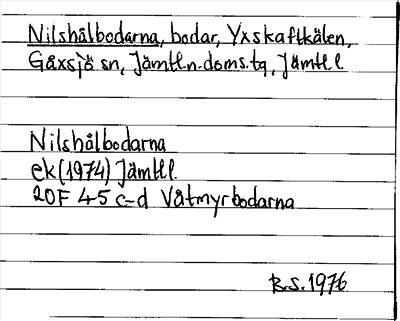 Nilshålbodarna, bodar, Yxskaftkälen,
Gåxsjö sn, Jämtln. doms. tg, Jämtl. l
Nilshålbodarna
ek (1974) Jämtl.
20F 4-5 c-d Våtmyrbodarna
R.S. 1976